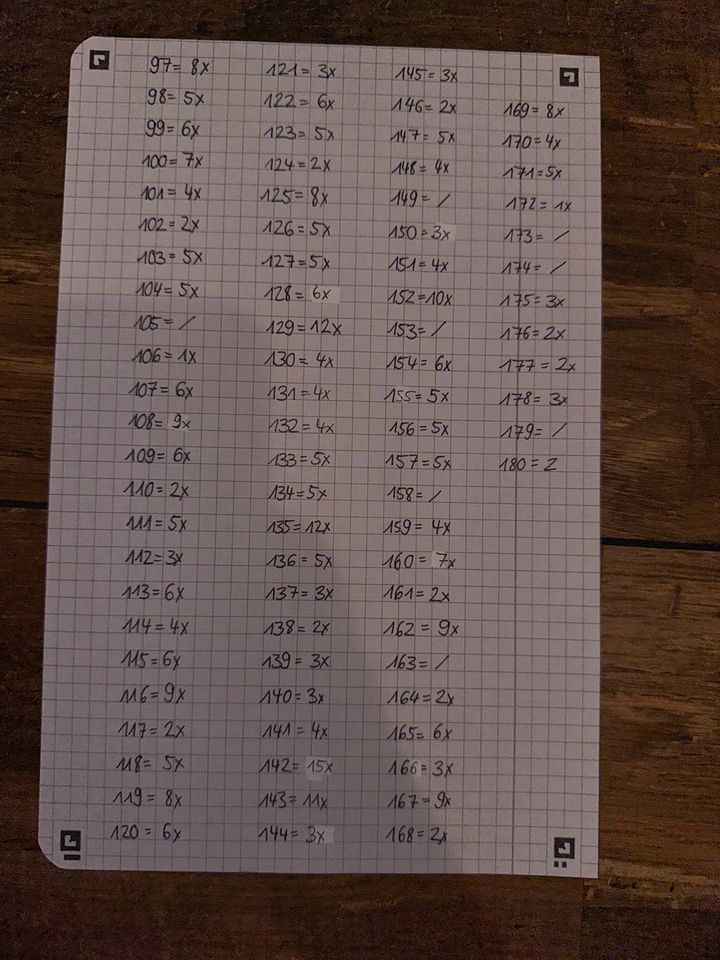 97= 8x
98= 5x
99= 6x
100= 7x
101= 4x
102= 2x
103= 5x
104= 5x
105= /
106= 1x
107= 6x
108= 9x
109= 6x
110= 2x
111= 5x
112= 3x
113= 6x
114= 4x
115= 6x
116= 9x
117= 2x
118= 5x
119= 8x
120 = 6x
121= 3x
122= 6x
123= 5x
124= 2x
125= 8x
126= 5x
127= 5x
128= 6x
129= 12x
130= 4x
131= 4x
132= 4x
133= 5x
134= 5x
135= 12x
136= 5x
137= 3x
138= 2x
139= 3x
140= 3x
141= 4x
142= 15x
143= 11x
144= 3x
145= 3x
146= 2x
147= 5x
148= 4x
149= /
150= 3x
151= 4x
152= 10x
153= /
154= 6x
155= 5x
156= 5x
157= 5x
158= /
159= 4x
160= 7x
161= 2x
162= 9x
163= /
164= 2x
165= 6x
166= 3x
167= 9x
168= 2x
169= 8x
170= 4x
171= 5x
172= 1x
173= /
174= /
175= 3x
176= 2x
177= 2x
178= 3x
179= /
180= 2